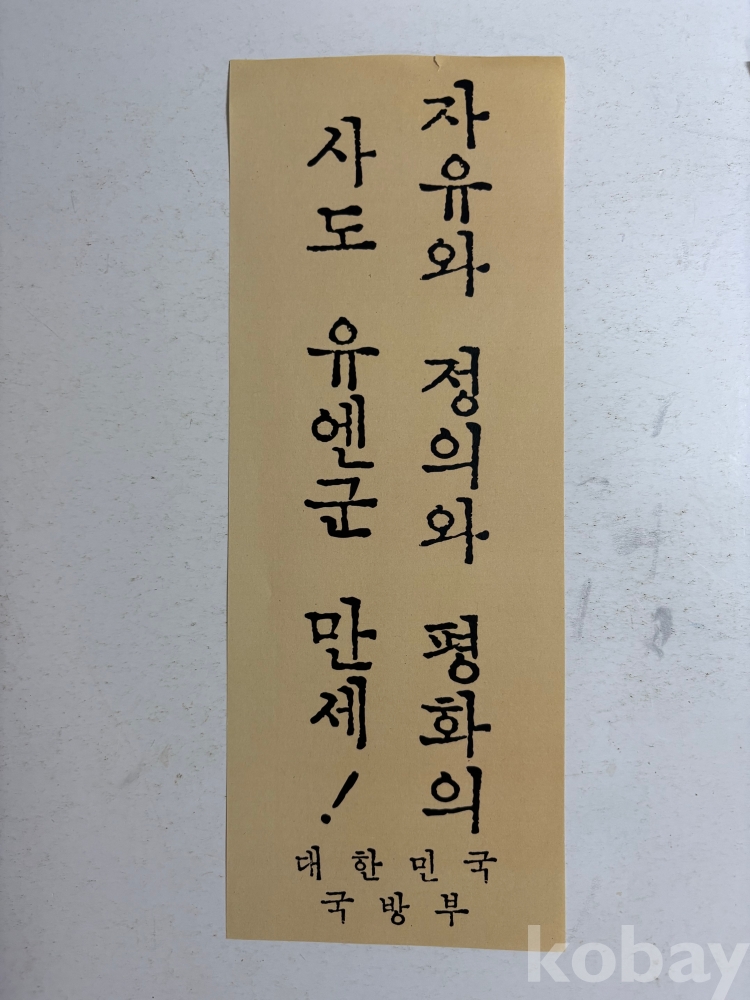 자유와 정의와 평화의
사도 유엔군 만세!
대한민국
국방부
kobay